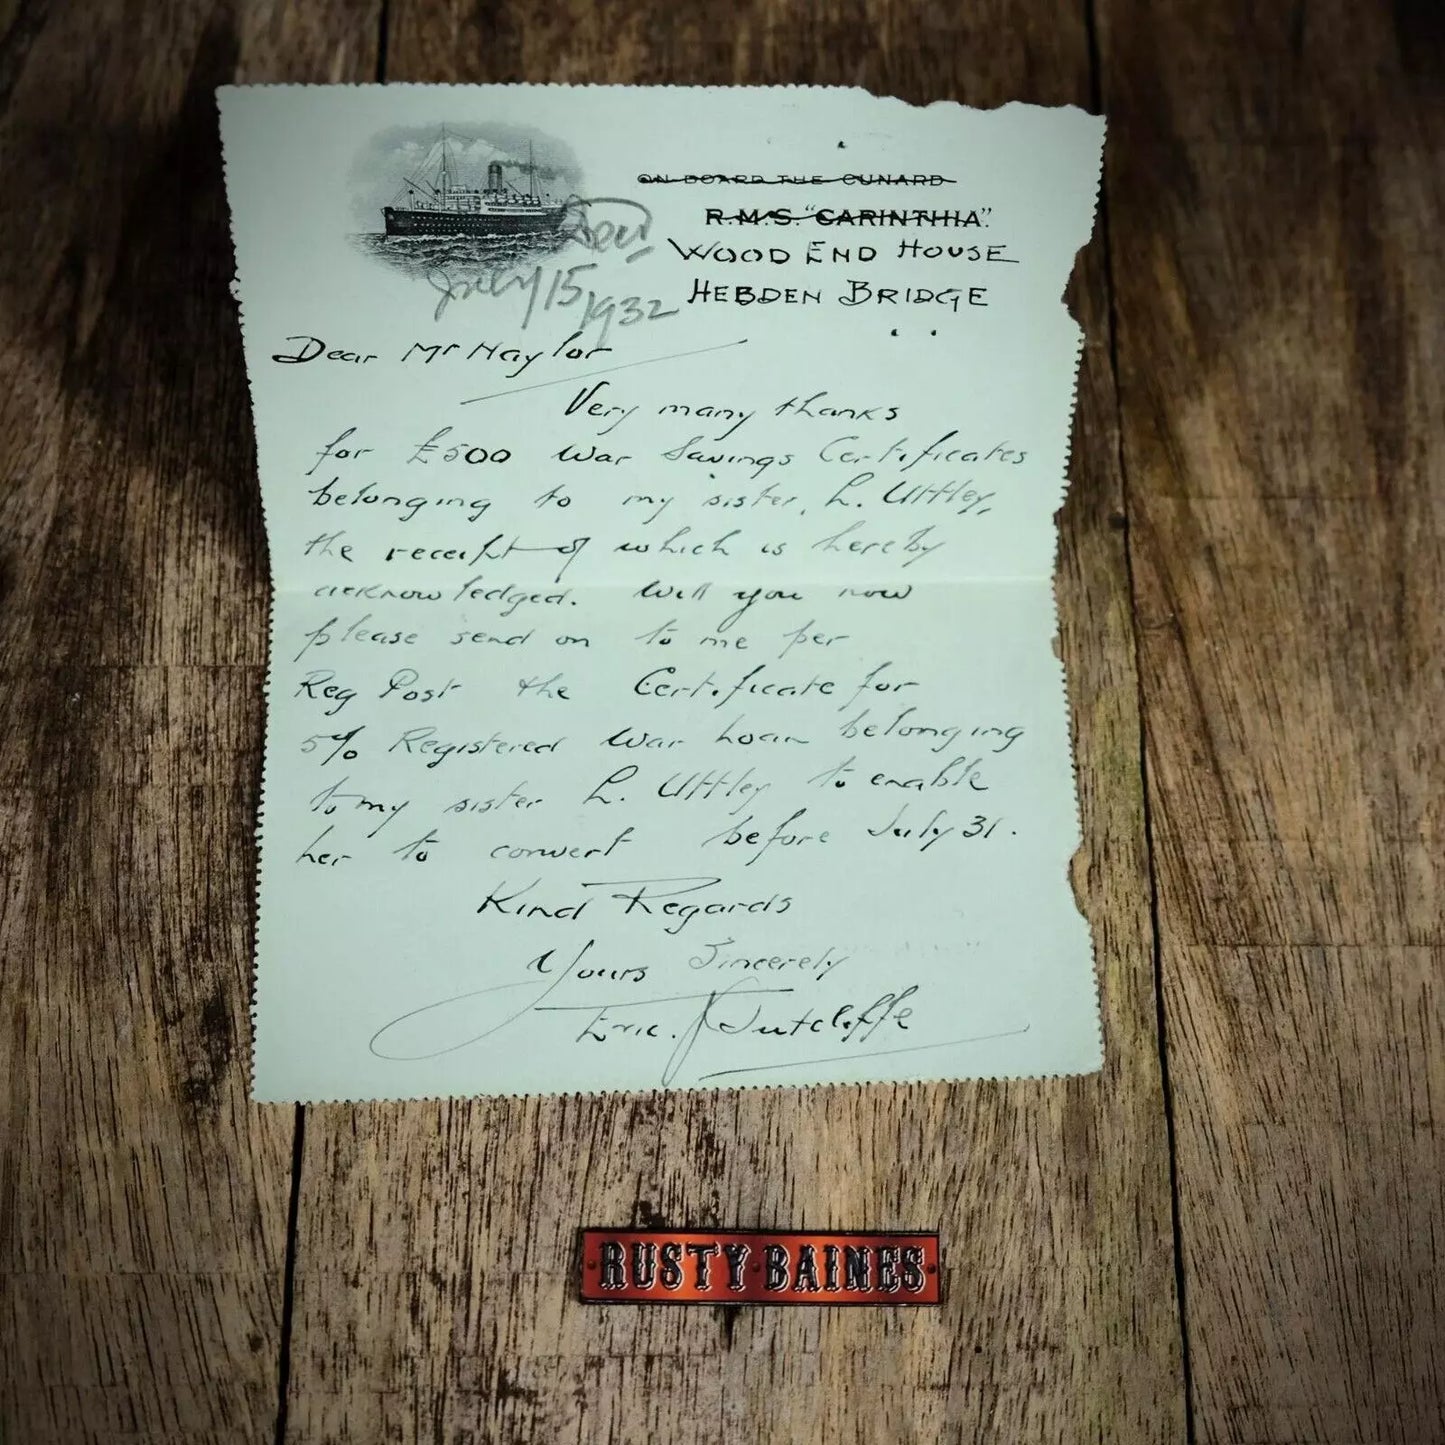 ON BOARD THE CUNARD
R.M.S. "CARINTHIA".
WOOD END HOUSE
HEBDEN BRIDGE
July 15, 1932
Dear Mr Naylor
Very many thanks
for £500 War Savings Certificates
belonging to my sister, L. Uttley,
the receipt of which is hereby
acknowledged. Will you now
please send on to me per
Reg Post the Certificate for
5% Registered War Loan belonging
to my sister L. Uttley to enable
her to convert before July 31.
Kind Regards
Yours Sincerely
Eric. J Sutcliffe
RUSTY BAINES